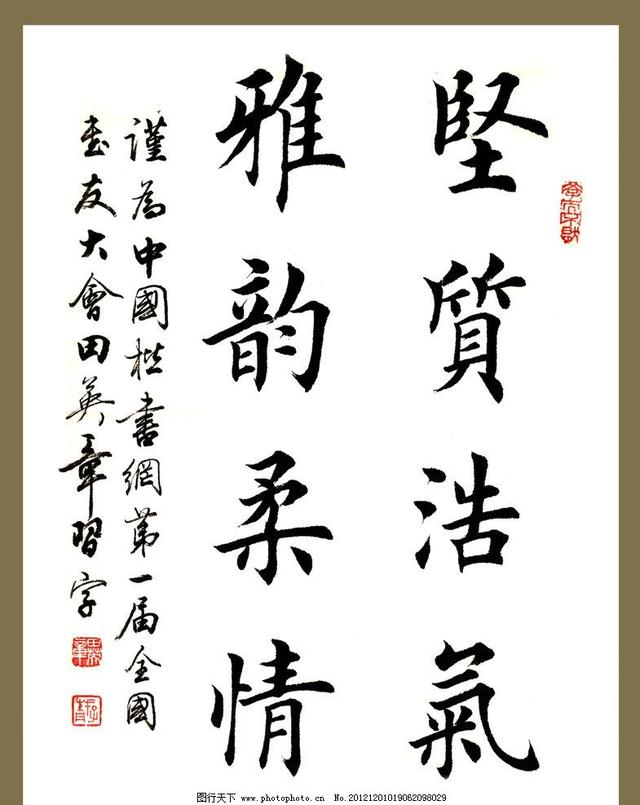 堅質浩氣
雅韵柔情
謹為中國楷書網第一届全國
書友大會田英章習字
图行天下 www.photophoto.cn No.20121201019062098029